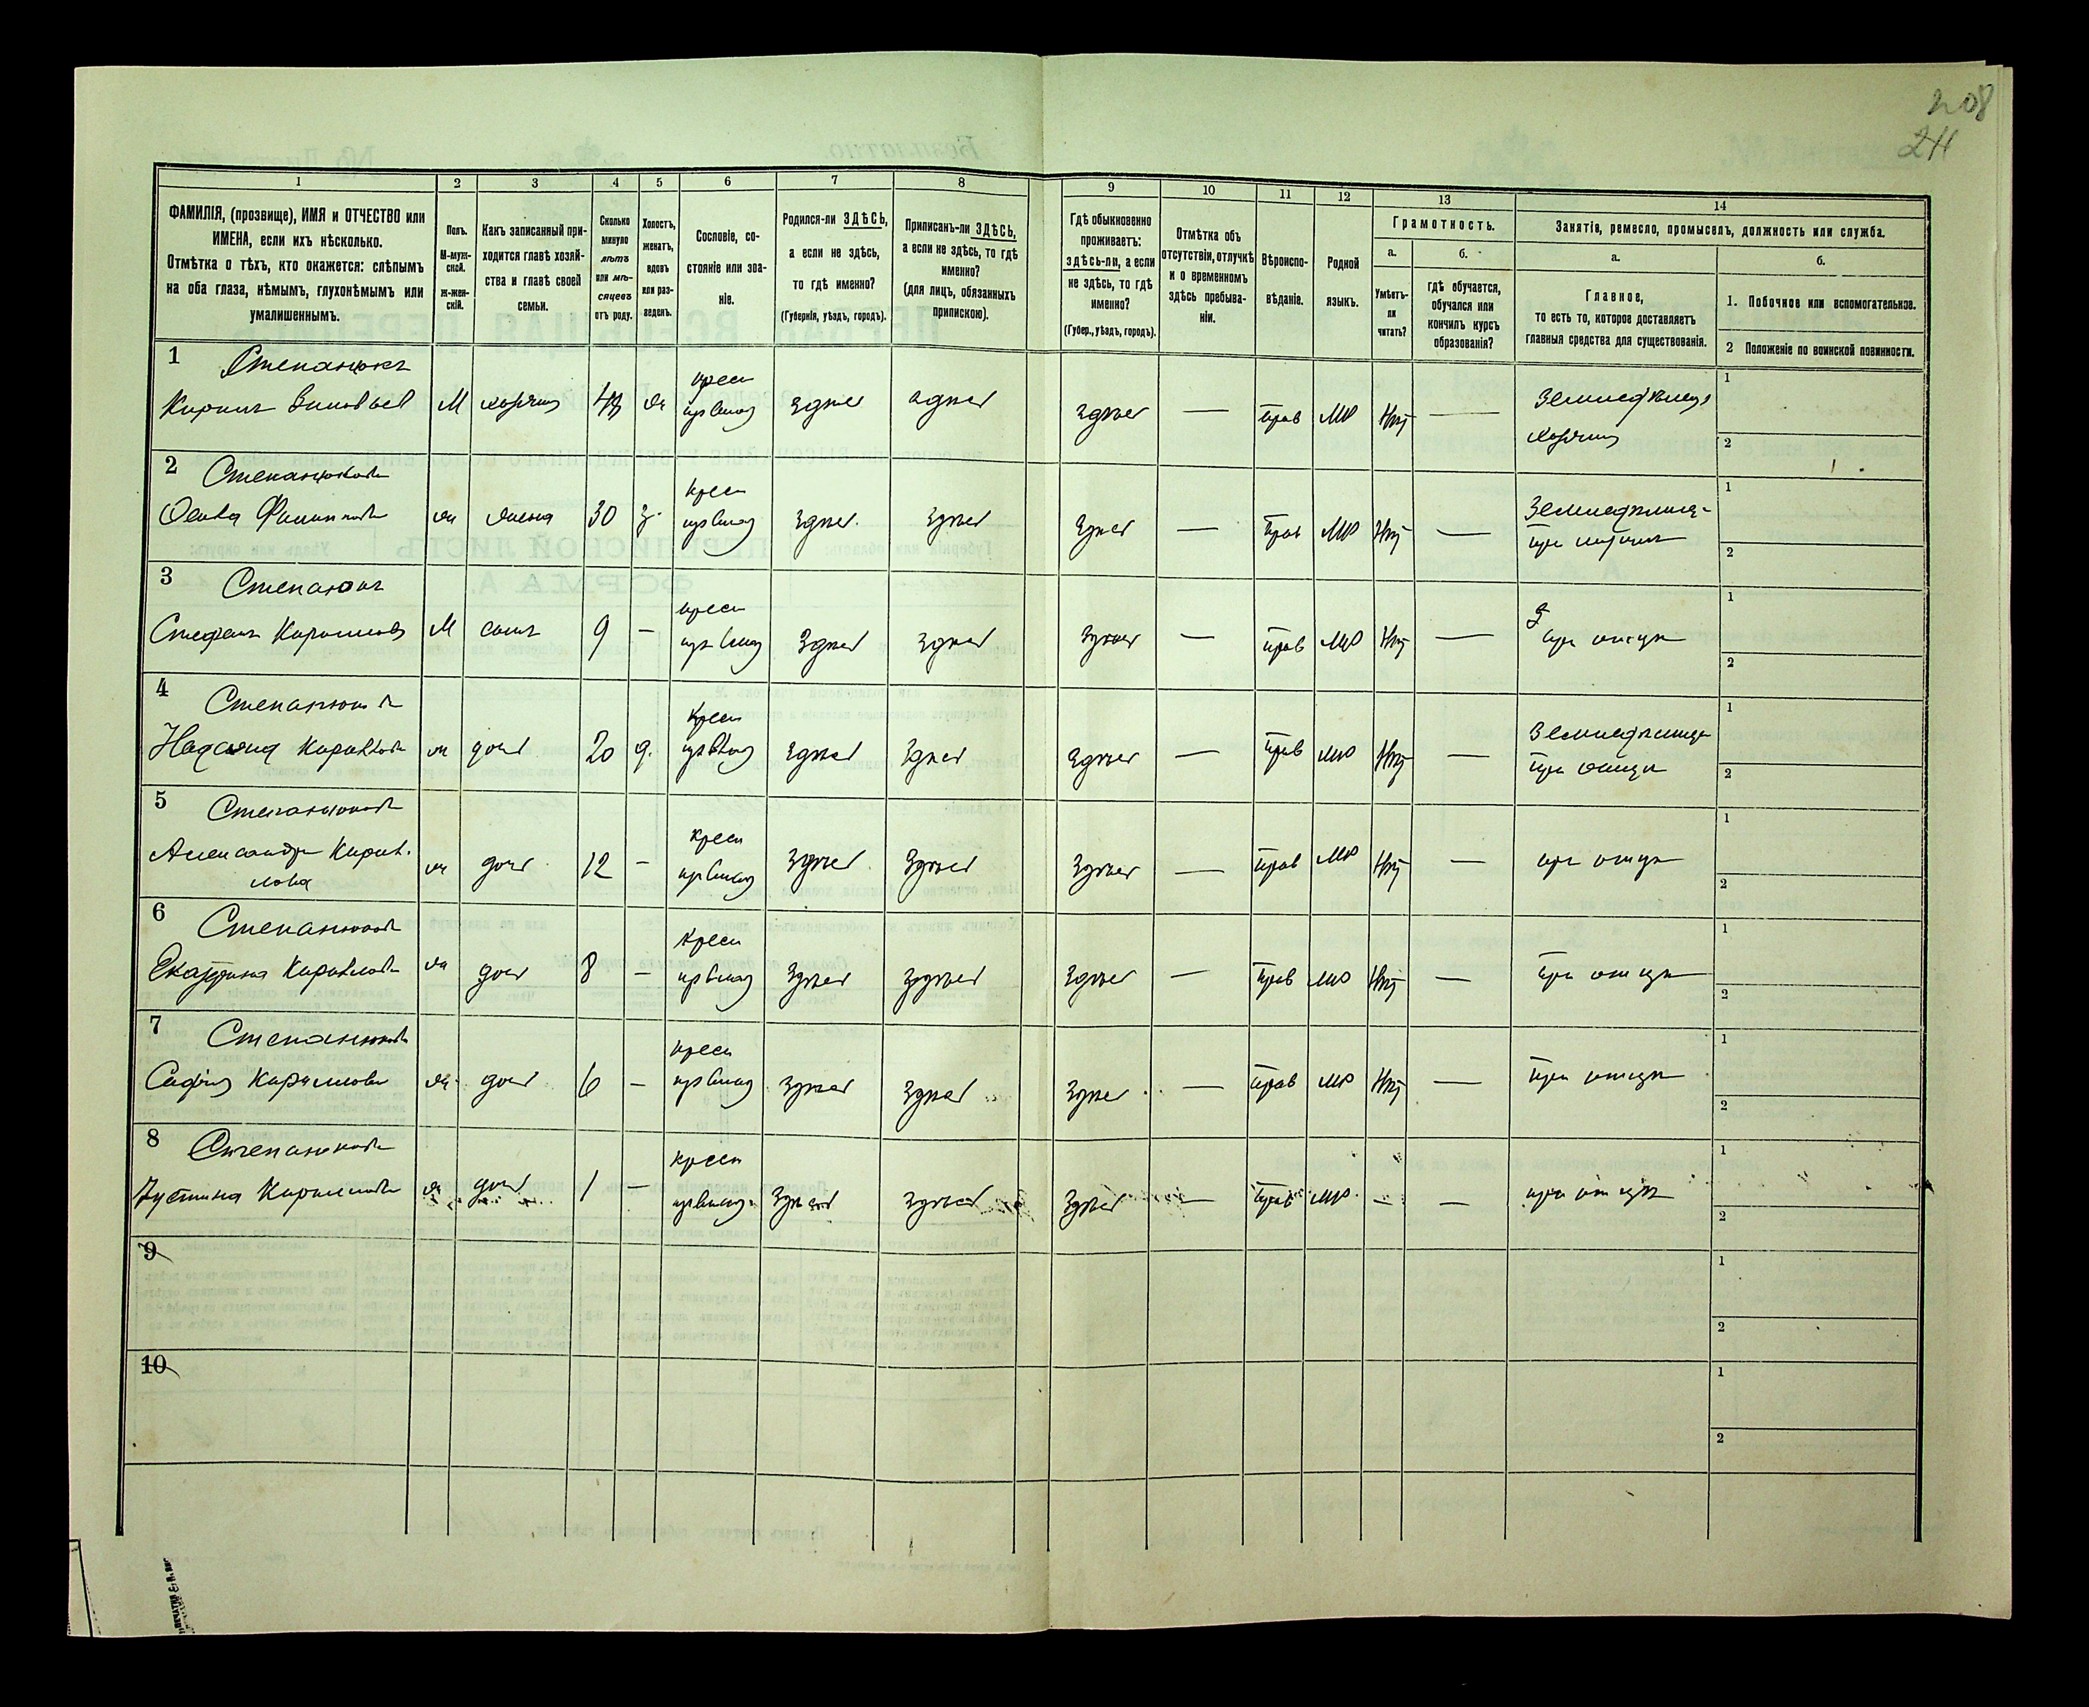 208
211
1 2 3 4 5 6 7 8 9 10 11 12 13 14
ФАМИЛІЯ, (прозвище), ИМЯ и ОТЧЕСТВО или
ИМЕНА, если ихъ нѣсколько.
Отмѣтка о тѣхъ, кто окажется: слѣпымъ
на оба глаза, нѣмымъ, глухонѣмымъ или
умалишеннымъ.
Полъ.
М-муж-
ской.
ж-жен-
скій.
Какъ записанный при-
ходится главѣ хозяй-
ства и главѣ своей
семьи.
Сколько
минуло
лѣтъ
или мѣ-
сяцевъ
отъ роду.
Холостъ,
женатъ,
вдовъ
или раз-
веденъ.
Сословіе, со-
стояніе или зва-
ніе.
Родился-ли ЗДѢСЬ,
а если не здѣсь,
то гдѣ именно?
(Губернія, уѣздъ, городъ).
Приписанъ-ли ЗДѢСЬ,
а если не здѣсь, то гдѣ
именно?
(для лицъ, обязанныхъ
припискою).
Гдѣ обыкновенно
проживаетъ:
здѣсь-ли, а если
не здѣсь, то гдѣ
именно?
(Губер., уѣздъ, городъ).
Отмѣтка объ
отсутствіи, отлучкѣ
и о временномъ
здѣсь пребыва-
ніи.
Вѣроиспо-
вѣданіе.
Родной
языкъ.
Грамотность.
а.
Умѣетъ-
ли
читать?
б.
гдѣ обучается,
обучался или
кончилъ курсъ
образованія?
Занятія, ремесло, промыселъ, должность или служба.
а.
Главное,
то есть то, которое доставляетъ
главныя средства для существованія.
б.
1. Побочное или вспомогательное.
2 Положеніе по воинской повинности.
1 Степанюкъ
крес
Земледѣлецъ
1
Кирилъ М хозяинъ здѣсь здѣсь здѣсь — прав МР Нѣт —
хозяинъ
2
2 Степанюкова
крес
Земледѣлица
1
жена 30 з. здѣсь здѣсь здѣсь — прав МР Нѣт —
при
2
3 Степанюкъ
крес
1
Стефанъ Кириловъ М сынъ 9 — здѣсь здѣсь здѣсь — прав МР Нѣт — при отцѣ
2
4 Степанюкова
крес
Земледѣлица
1
Кирилова ж дочь 20 д. здѣсь здѣсь здѣсь — прав МР Нѣт —
при отцѣ
2
5 Степанюкова
крес
1
Александра Кирил-
лова
ж дочь 12 — здѣсь здѣсь здѣсь — прав МР Нѣт — при отцѣ
2
6 Степанюкова
крес
1
Екатерина Кирилова ж дочь 8 — здѣсь здѣсь здѣсь — прав МР Нѣт — при отцѣ
2
7 Степанюкова
крес
1
Софія Кирилова ж дочь 6 — здѣсь здѣсь здѣсь — прав МР Нѣт — при отцѣ
2
8 Степанюкова
крес
1
Устина Кирилова ж дочь 1 — здѣсь здѣсь здѣсь — прав МР — — при отцѣ
2
9
1
2
10
1
2